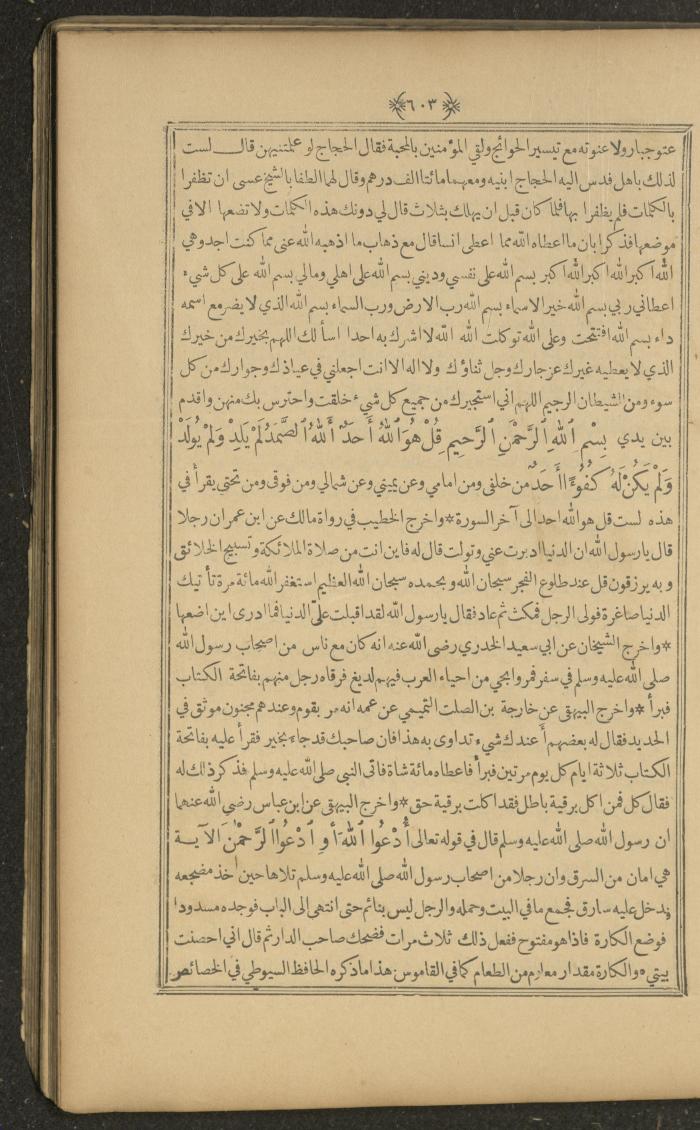 ﴿٦٠٣﴾
عتو جبار ولا عنوته مع تيسير الحوائج ولقي المؤمنين بالمحبة فقال الحجاج لو علمتنيهن قال لست
لذلك باهل فدس اليه الحجاج ابنيه ومعهما مائتا الف درهم وقال لهما الطفا بالشيخ عسى ان تظفرا
بالكلمات فلم يظفرا بها فلما كان قبل ان يهلك بثلاث قال لي دونك هذه الكلمات ولا تضعها الا في
موضعها فذكر ابان ما اعطاه الله مما اعطى انسا قال مع ذهاب ما اذهبه الله عنى مما كنت اجد وهي
الله اكبر الله اكبر الله اكبر بسم الله على نفسي وديني بسم الله على اهلي ومالي بسم الله على كل شيء
اعطاني ربي بسم الله خير الاسماء بسم الله رب الارض ورب السماء بسم الله الذي لا يضر مع اسمه
داء بسم الله افتتحت وعلى الله توكلت الله الله لا اشرك به احدا اسألك اللهم بخيرك من خيرك
الذي لا يعطيه غيرك عز جارك وجل ثناؤك ولا اله الا انت اجعلني في عياذك وجوارك من كل
سوء ومن الشيطان الرجيم اللهم اني استجيرك من جميع كل شيء خلقت واحترس بك منهن واقدم
بين يدي بِسْمِ ٱللهِ ٱلرَّحْمٰنِ ٱلرَّحِيمِ قُلْ هُوَ ٱللهُ أَحَدٌ ٱللهُ ٱلصَّمَدُ لَمْ يَلِدْ وَلَمْ يُولَدْ
وَلَمْ يَكُنْ لَهُ كُفُوًءا أَحَدٌ من خلفى ومن امامي وعن يميني وعن شمالي ومن فوقى ومن تحتي يقرأ في
هذه لست قل هو الله احد الى آخر السورة * واخرج الخطيب في رواة مالك عن ابن عمر ان رجلا
قال يا رسول الله ان الدنيا ادبرت عني وتولت قال له فاين انت من صلاة الملائكة وتسبيح الخلائق
و به يرزقون قل عند طلوع الفجر سبحان الله وبحمده سبحان الله العظيم استغفر الله مائة مرة تأتيك
الدنيا صاغرة فولى الرجل فمكث ثم عاد فقال يا رسول الله لقد اقبلت عليّ الدنيا فما ادرى اين اضعها
* واخرج الشيخان عن ابي سعيد الخدري رضى الله عنه انه كان مع ناس من اصحاب رسول الله
صلى الله عليه وسلم في سفر فمروا بحي من احياء العرب فيهم لديغ فرقاه رجل منهم بفاتحة الكتاب
فبرأ * واخرج البيهقى عن خارجة بن الصلت التميمي عن عمه انه مر بقوم وعندهم مجنون موثق في
الحديد فقال له بعضهم أعندك شيء تداوى به هذا فان صاحبك قد جاء بخير فقرأ عليه بفاتحة
الكتاب ثلاثة ايام كل يوم مرتين فبرأ فاعطاه مائة شاة فاتى النبي صلى الله عليه وسلم فذكر ذلك له
فقال كل فمن اكل برقية باطل فقد اكلت برقية حق * واخرج البيهقى عن ابن عباس رضي الله عنهما
ان رسول الله صلى الله عليه وسلم قال في قوله تعالى أُدْعُوا ٱللهَ أَوِ ٱدْعُوا ٱلرَّحْمٰنَ الآيــة
هي امان من السرق وان رجلا من اصحاب رسول الله صلى الله عليه وسلم تلاها حين اخذ مضجعه
فدخل عليه سارق فجمع ما في البيت وحمله والرجل ليس بنائم حتى انتهى الى الباب فوجده مسدودا
فوضع الكارة فاذا هو مفتوح ففعل ذلك ثلاث مرات فضحك صاحب الدار ثم قال اني احصنت
بيتي * والكارة مقدار معلوم من الطعام كما في القاموس هذا ما ذكره الحافظ السيوطي في الخصائص